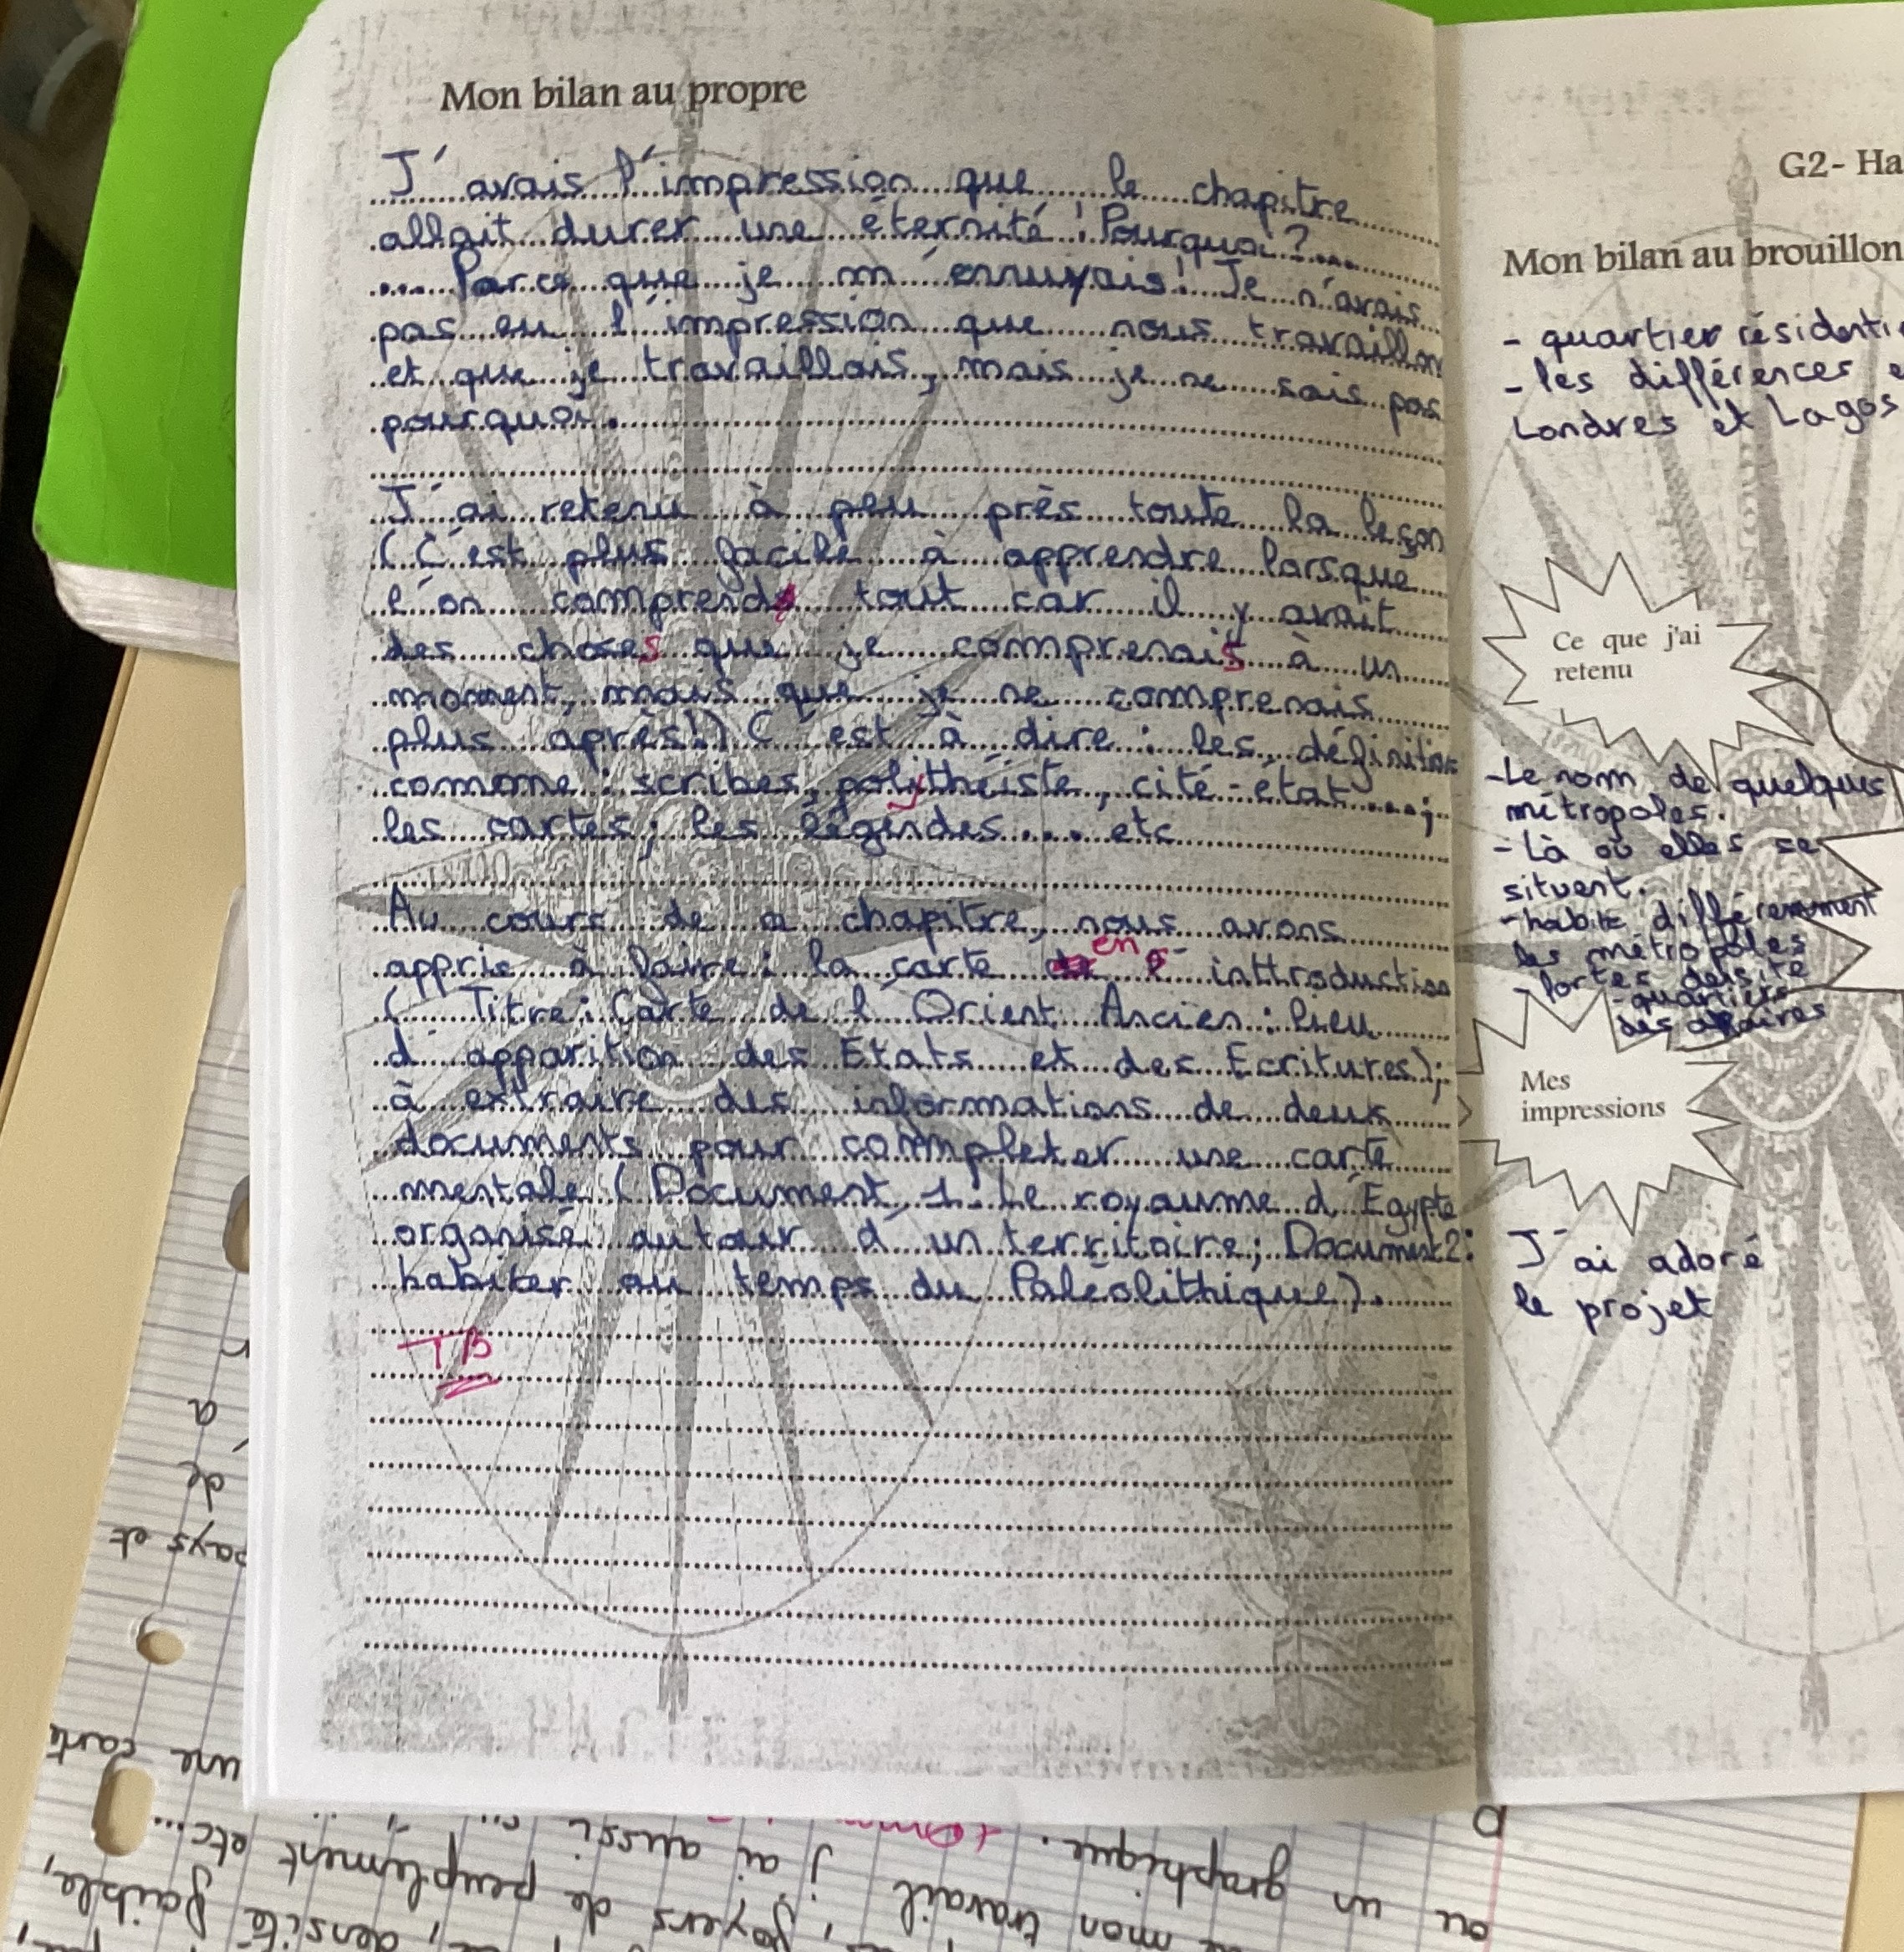 Mon bilan au propre
J'avais l'impression que le chapitre
allait durer une éternité ! Pourquoi ?...
.... Parce que je m'ennuyais ! Je n'avais
pas eu l'impression que nous travaillon
et que je travaillais, mais je ne sais pas
pourquoi.
J'ai retenu à peu près toute la leçon
(C'est plus facile à apprendre lorsque
l'on comprend tout car il y avait
des choses que je comprenais à un
moment, mais que je ne comprenais
plus après !) C'est à dire : les définition
comme : scribes, polythéiste, cité-état....;
les cartes; les légendes.... etc
Au cours de ce chapitre, nous avons
appris à faire : la carte en inttroduction
(Titre : Carte de l'Orient Ancien : lieu
d'apparition des Etats et des Ecritures);
à extraire des informations de deux
documents pour compléter une carte
mentale (Document 1. Le royaume d'Egypte
organisé autour d'un territoire; Document 2 :
habiter au temps du Paléolithique).
TB
G2- Ha
Mon bilan au brouillon
- quartier résidenti
- les différences e
Londres et Lagos
Ce que j'ai
retenu
- Le nom de quelques
métropoles.
- Là où elles se
situent.
- habite différemment
les métropoles
- fortes densité
- quartiers
des affaires
Mes
impressions
J'ai adoré
le projet
a
de
pays et
une carte
ou un graphique.
mon travail j'ai aussi
foyers de peuplement
etc...
densité faible,